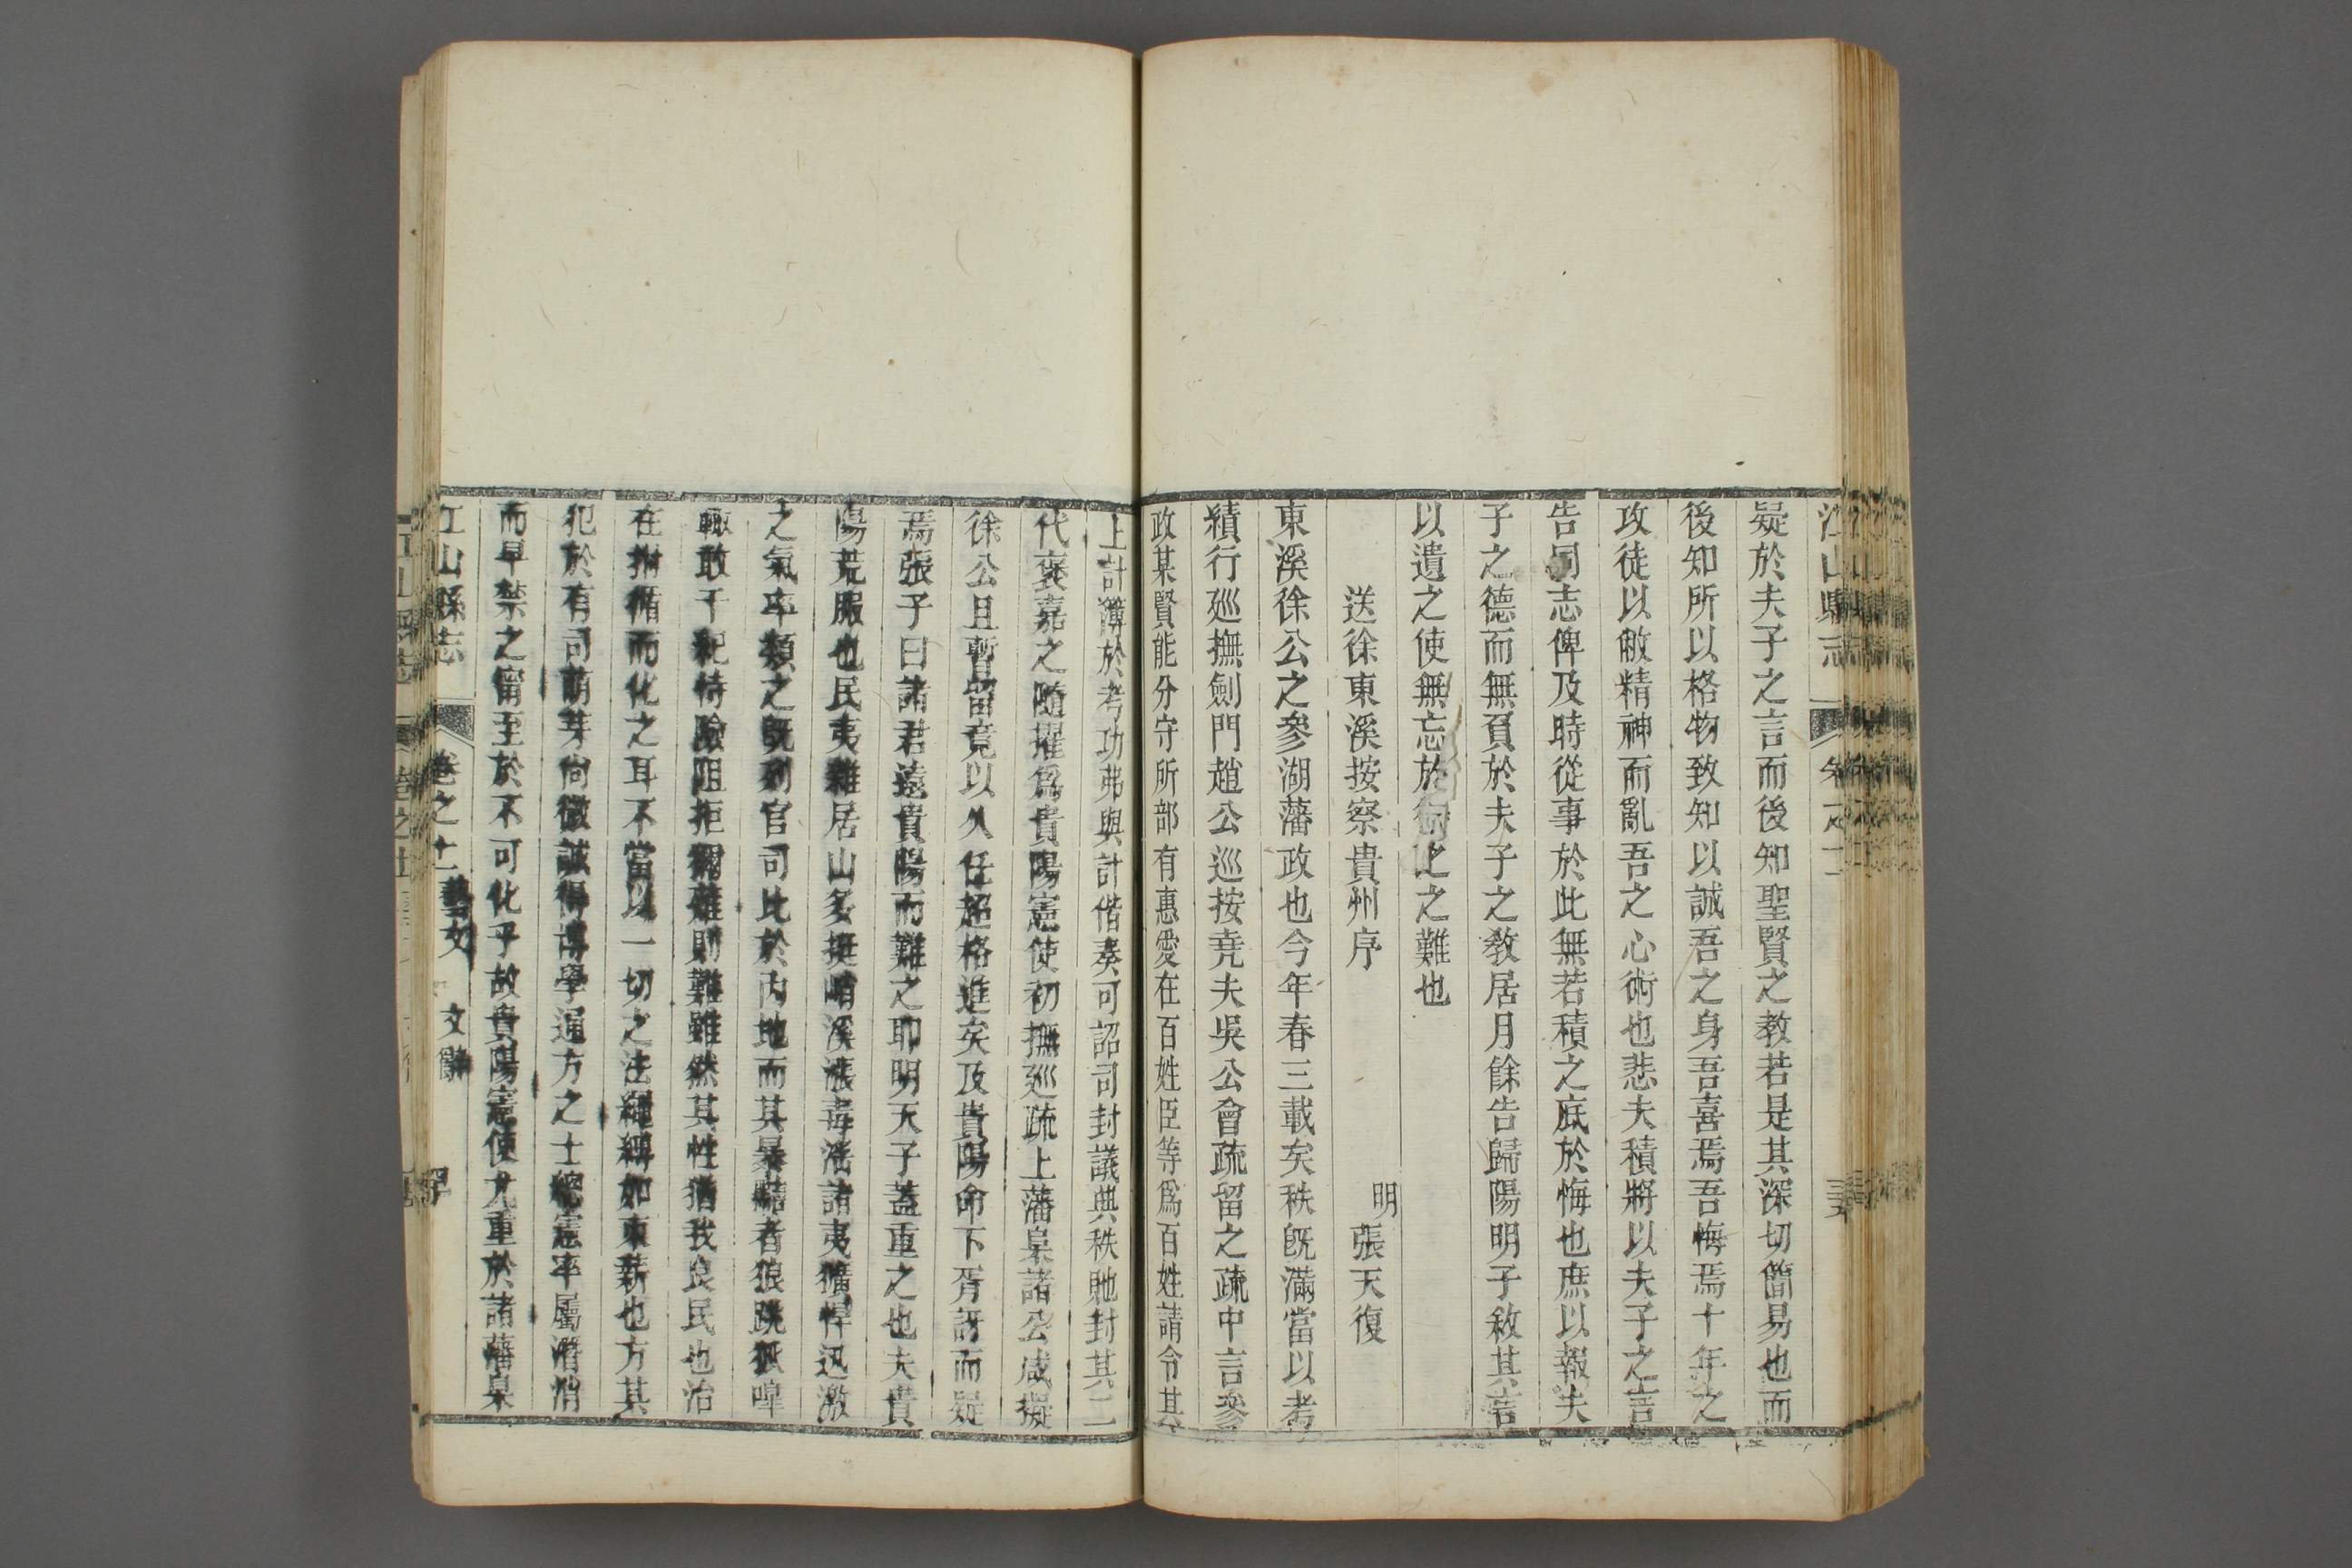 江山縣志
疑於夫子之言而後知聖賢之教若是其深切簡易也而
後知所以格物致知以誠吾之身吾喜焉吾悔焉十年之
攻徒以敝精神而亂吾之心術也悲夫積將以夫子之言
告同志俾及時從事於此無若積之底於悔也庶以報夫
子之德而無負於夫子之教居月餘告歸陽明子敘其言
以遺之使無忘於得之之難也
送徐東溪按察貴州序
明張天復
東溪徐公之參湖藩政也今年春三載矣秩旣滿當以考
績行廵撫劍門趙公巡按堯夫吳公會疏留之疏中言參
政某賢能分守所部有惠愛在百姓臣等爲百姓請令其
上計簿於考功弗與計偕奏可詔司封議典秩貤封其二
代褒嘉之隨擢爲貴陽憲使初撫廵疏上藩臬諸公咸擬
徐公且暫留竟以久任超格進矣及貴陽命下胥訝而疑
焉張子曰諸君遠貴陽而難之耶明天子蓋重之也夫貴
陽荒服也民夷雜居山多挺峭溪漲毒淫諸夷獷悍迅激
之氣卒類之旣列官司比於內地而其暴驁者狼跳狐嘷
輒敢干紀恃險阻拒 則難雖然其性猶我良民也治
在拊循而化之耳不當以一切之法繩縛如束薪也方其
犯於有司萌芽尙微誠得博學通方之士總憲率屬潛消
而早禁之甯至於不可化乎故貴陽憲使尤重於諸藩臬
江山縣志 卷之十一 藝文 文辭